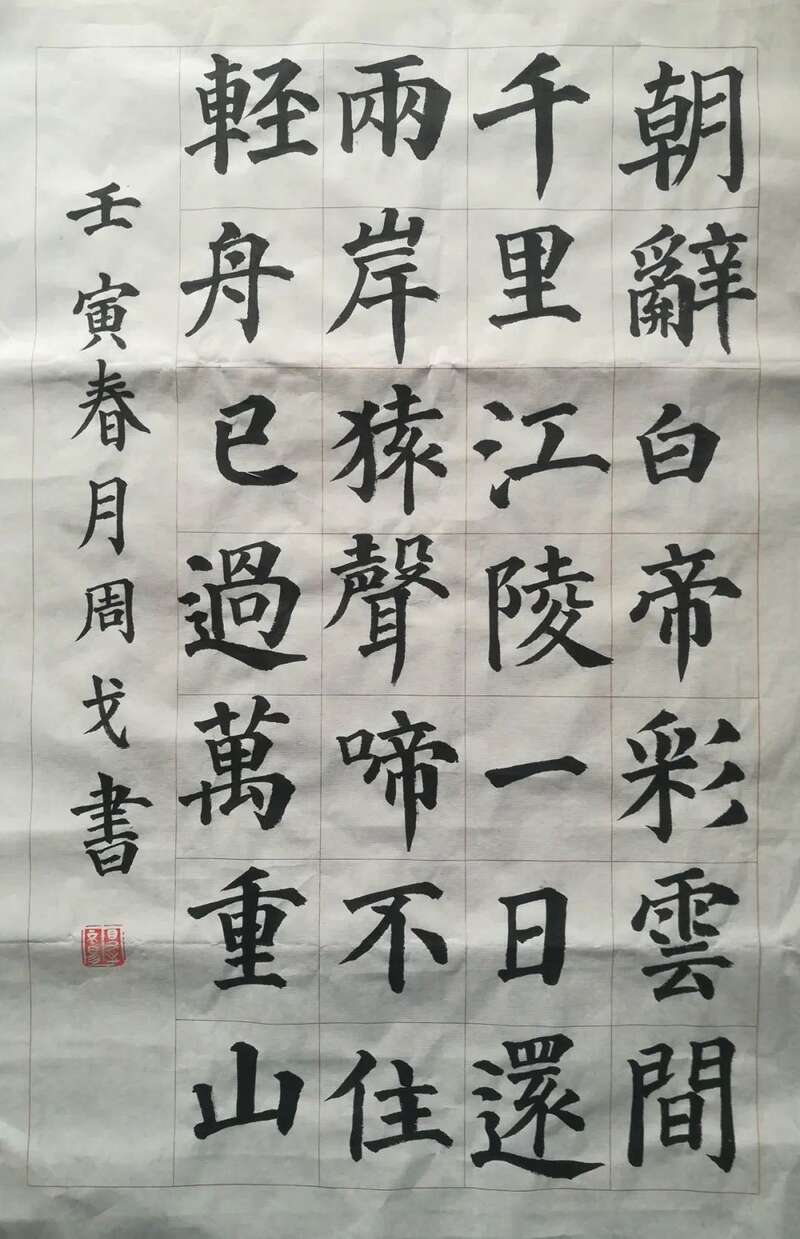 朝辭白帝彩雲間
千里江陵一日還
兩岸猿聲啼不住
軽舟已過萬重山
壬寅春月周戈書